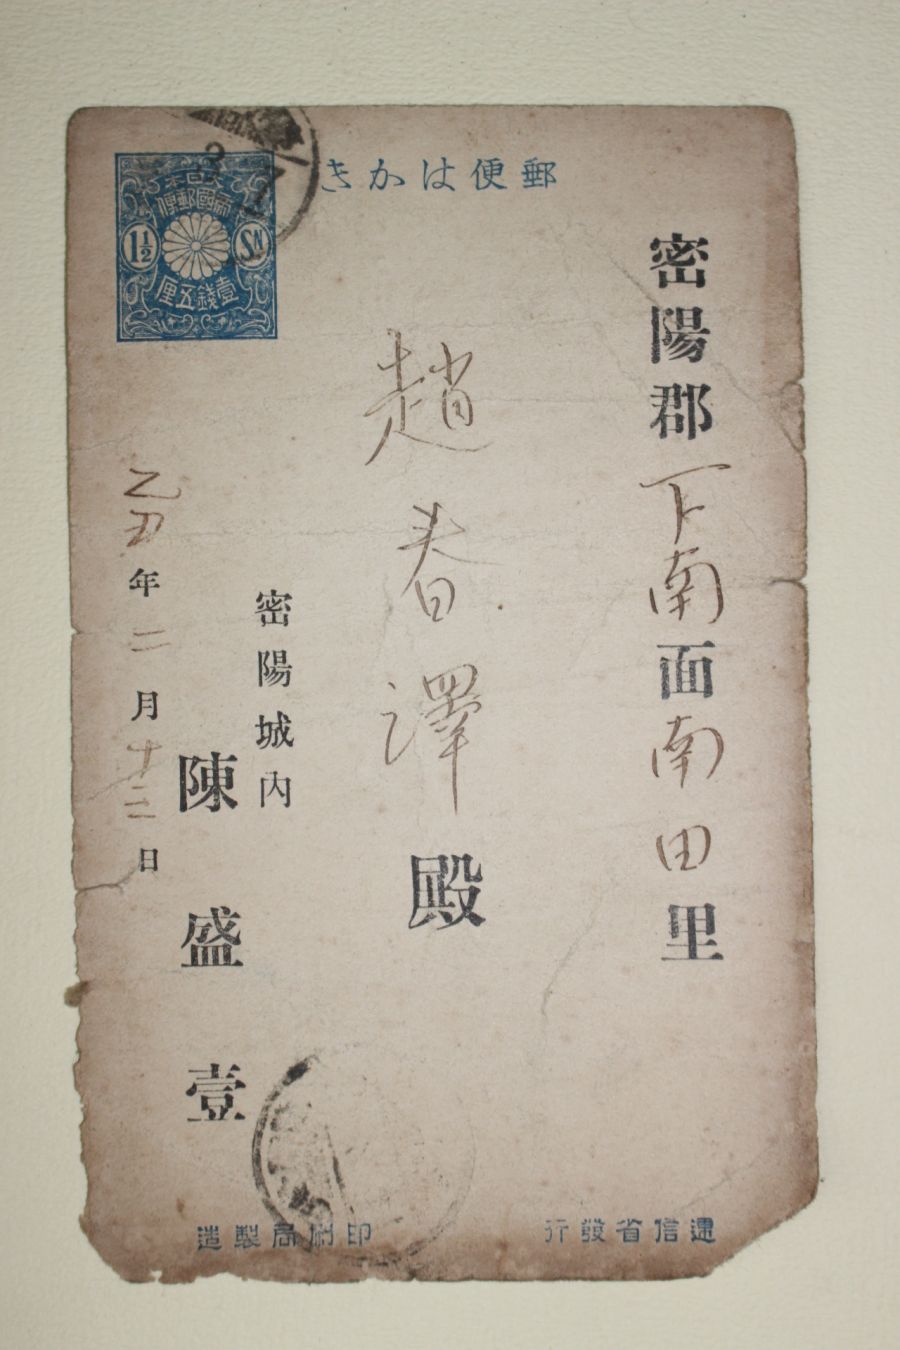 郵便はかき
大日本
帝國郵便
1½ SN
壹錢五厘
3 7
密陽郡下南面南田里
趙春澤殿
密陽城內
陳盛壹
乙丑年二月十二日
遞信省發行
印刷局製造